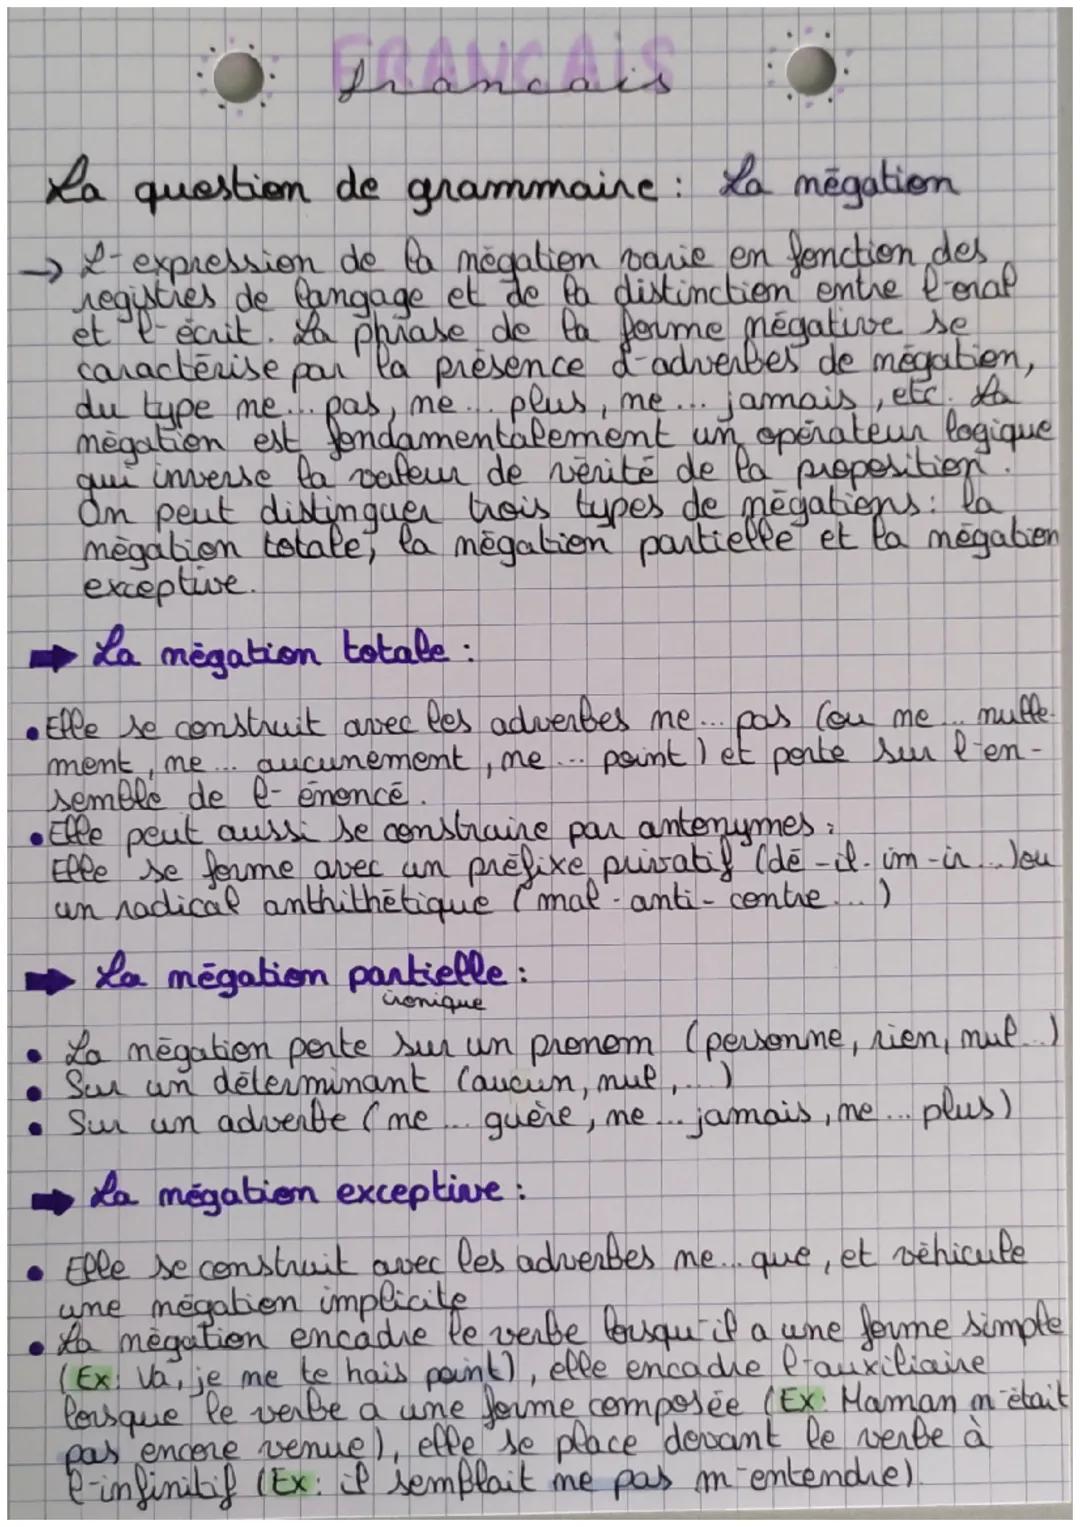 FRANCAIS
francais
La question de grammaire : La négation
→ L'expression de la négation varie en fonction des
registres de langage et de la distinction entre l'oral
et l'écrit. La phrase de la forme négative se
caractérise par la présence d'adverbes de négation,
du type ne... pas, ne... plus, ne... jamais, etc. La
négation est fondamentalement un opérateur logique
qui inverse la valeur de vérité de la proposition.
On peut distinguer trois types de négations : la
négation totale, la négation partielle et la négation
exceptive.
➡ La négation totale :
• Elle se construit avec les adverbes ne... pas (ou ne... nulle-
ment, ne... aucunement, ne... point) et porte sur l'en-
semble de l'énoncé.
• Elle peut aussi se construire par antonymes :
Elle se forme avec un préfixe privatif (dé-il-im-in...) ou
un radical anthithétique (mal-anti-contre...)
➡ La négation partielle :
ironique
• La négation porte sur un pronom (personne, rien, nul...)
• Sur un déterminant (aucun, nul, ...)
• Sur un adverbe (ne... guère, ne... jamais, ne... plus)
➡ La négation exceptive :
• Elle se construit avec les adverbes ne... que, et véhicule
une négation implicite
• La négation encadre le verbe lorsqu'il a une forme simple
(Ex: Va, je ne te hais point), elle encadre l'auxiliaire
lorsque le verbe a une forme composée (Ex: Maman n'était
pas encore venue), elle se place devant le verbe à
l'infinitif (Ex: il semblait ne pas m'entendre).